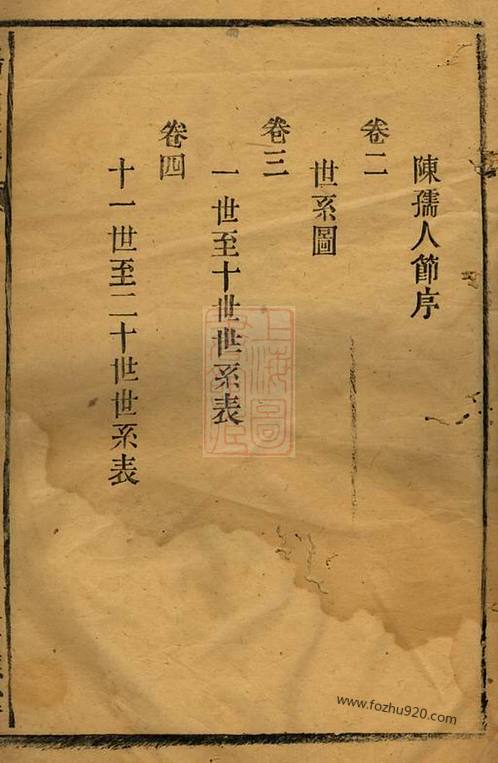 陳孺人節序
卷二
世系圖
卷三
一世至十世世系表
卷四
十一世至二十世世系表
www.fozhu920.com